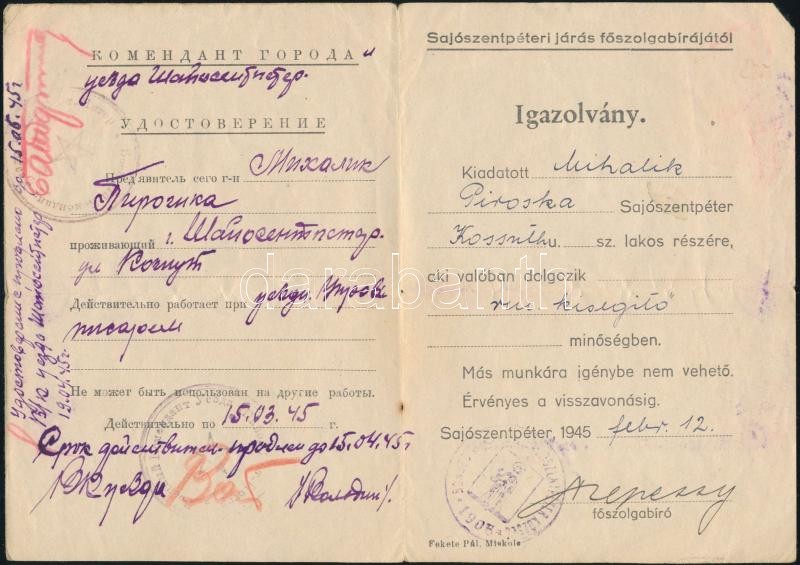 КОМЕНДАНТ ГОРОДА и
уезда Шапосентпетер.
УДОСТОВЕРЕНИЕ
Пред'явитель сего г-н Михалик
Пирошка
проживающий г. Шапосентпетер.
ул Кошут
Действительно работает при уездн.
писарем
Не может быть использован на другие работы.
Действительно по 15.03.45 г.
Срок действител. продлен до 15.04.45 г
Удостоверение продлено до 15.05.45 г
уезда Шапосентпетер
19.04.45 г.
Sajószentpéteri járás főszolgabírájától
Igazolvány.
Kiadatott Mihalik
Piroska Sajószentpéter
Kossuth u. sz. lakos részére,
aki valóban dolgozik
kisegítő
minőségben.
Más munkára igénybe nem vehető.
Érvényes a visszavonásig.
Sajószentpéter 1945 febr. 12.
főszolgabíró
Fekete Pál, Miskolc
darabanth.com